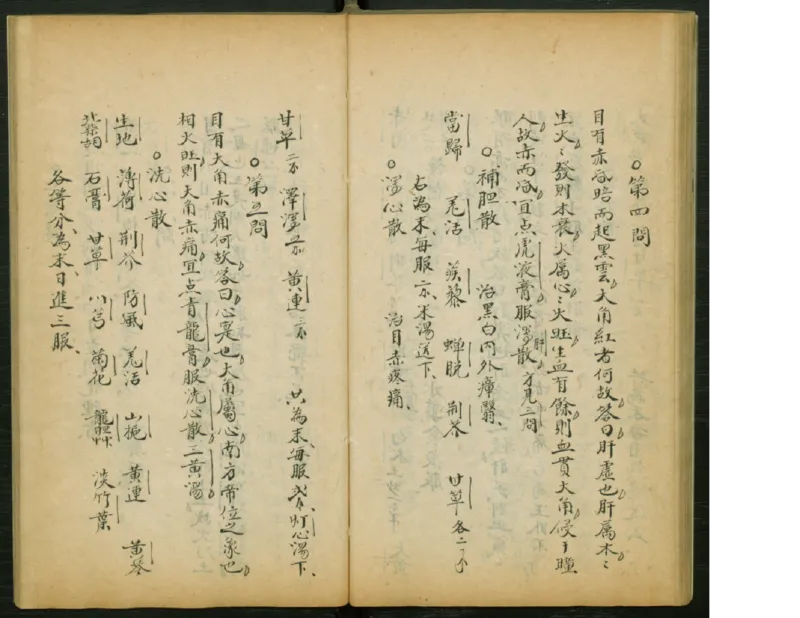 ○第四問
目有赤昏暗而起黒雲大角紅者何故答曰肝虚也肝属木〻
生火〻發則木衰火属心〻火旺生血有餘則血貫大角侵于瞳
人故赤而昏宜点虎液膏服瀉肝散方見三問
○補胆散 治黒白内外瘴翳
當歸 羌活 蒺藜 蝉脱 荆芥 甘草各二个
右為末毎服二分米湯送下
○瀉心散 治目赤疼痛
甘草二分 澤瀉五分 黄連三分 共為末毎服 灯心湯下
○第五問
目有大角赤痛何故答曰心寔也大角属心南方帝位之象也
相火旺則大角赤痛宜点青龍膏服洗心散三黄湯
○洗心散
生地 薄荷 荆芥 防風 羌活 山梔 黄連 黄芩
北柴胡 石膏 甘草 川芎 菊花 龍胆艸 淡竹葉
各等分為末日進三服